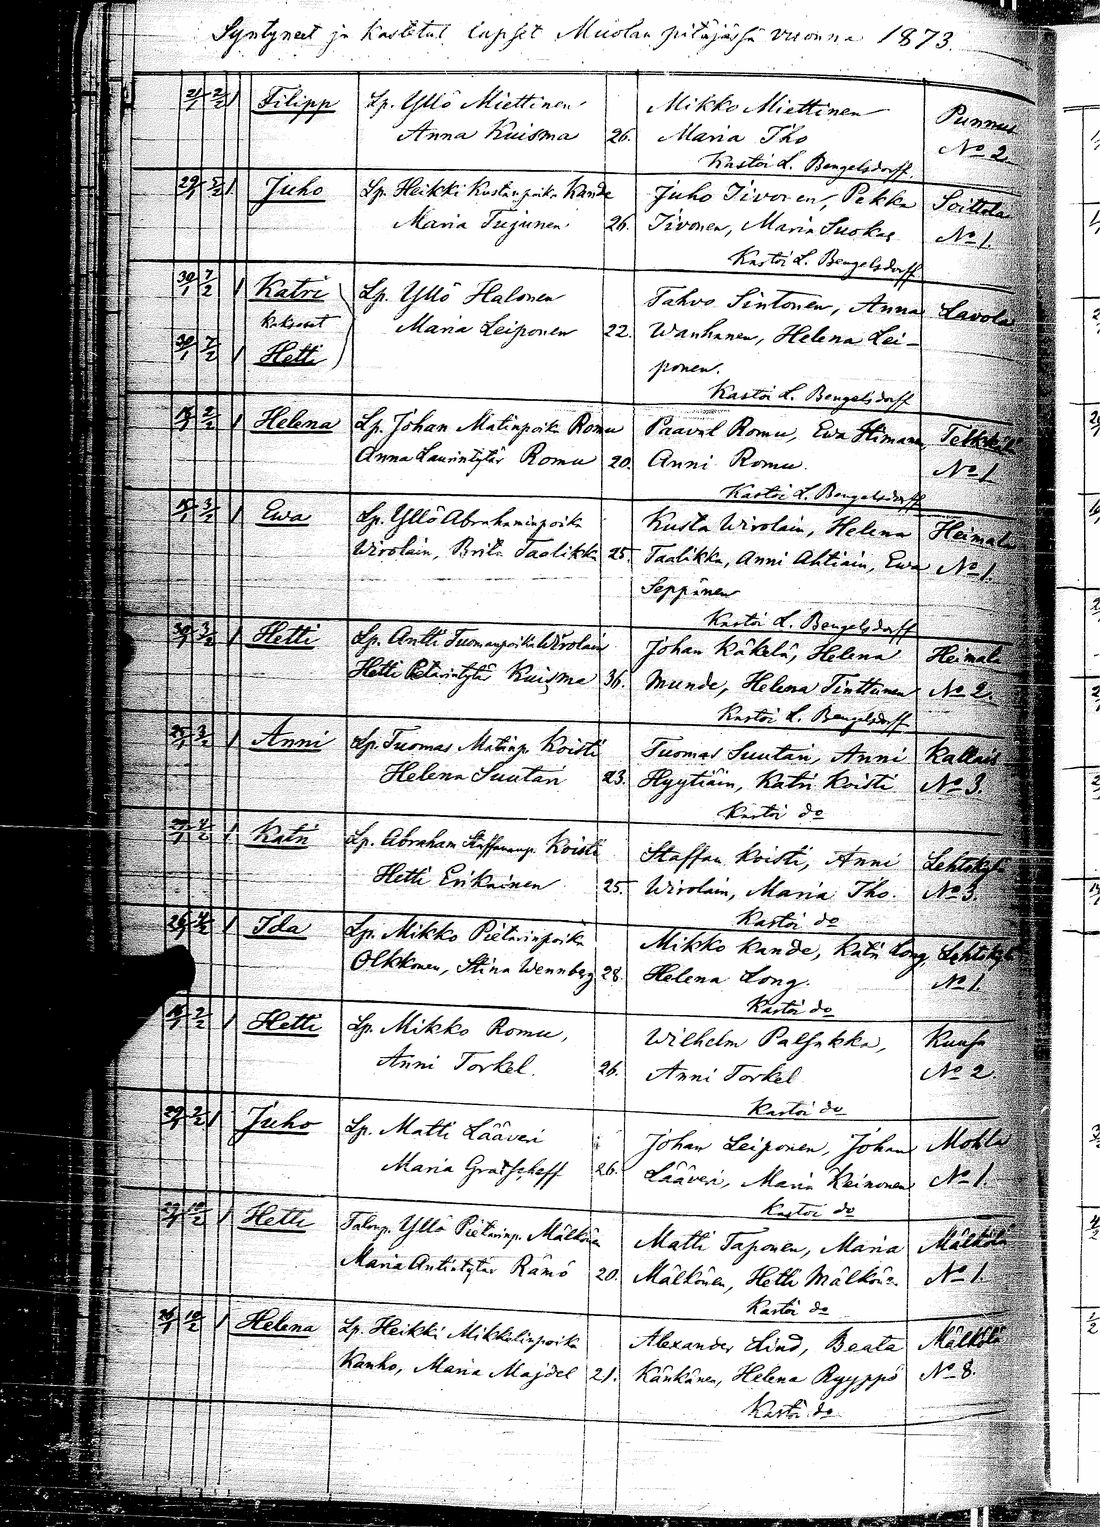 Syntyneet ja kastetut lapset Muolan pitäjässä vuonna 1873.
21/1 2/2 1 Filipp Lp. Yllö Miettinen Mikko Miettinen Punnus
Anna Kuisma 26. Maria Iho No 2.
Kastoi L. Bengelsdorff.
29/1 5/2 1. Juho Lp. Heikki Kustanpoika Kande Juho Iivonen, Pekka Soittola
Maria Tujunen 26. Iivonen, Maria Suokas No 1.
Kastoi L. Bengelsdorff
30/1 7/2 1 Katri Lp. Yllö Halonen Tahvo Sintonen, Anna Lavola
kaksoset Maria Leiponen 22. Wanhanen, Helena Lei-
30/1 7/2 1 Hetti ponen.
Kastoi L. Bengelsdorff
2/2 1 Helena Lp. Johan Matinpoika Romu Paavul Romu, Ewa Himanen
Anna Laurintytär Romu 20. Anni Romu. No 1
Kastoi L. Bengelsdorff
3/2 1 Ewa Lp. Yllö Abrahaminpoika Kusta Wirolain, Helena Heimala
Wirolain, Brita Taalikka 25. Taalikka, Anni Ahtiain, Ewa No 1.
Seppänen
Kastoi L. Bengelsdorff
30/1 3/2 1 Hetti Lp. Antti Tuomanpoika Wirolain Johan Käkelä, Helena Heimala
Hetti Pietarintytär Kuisma 36. Munde, Helena Tinttunen No 2.
Kastoi L. Bengelsdorff
25/1 3/2 1 Anni Lp. Tuomas Matinp. Koisti Tuomas Suutari, Anni Kallais
Helena Suutari 23. Hyytiäin, Katri Koisti No 3.
Kastoi do
4/2 1 Katri Lp. Abraham Staffananp. Koisti Staffan Koisti, Anni Lehtokylä
Hetti Erikainen 25. Wirolain, Maria Iho. No 3.
Kastoi do
26/1 4/2 1 Ida Lp. Mikko Pietarinpoika Mikko Kande, Katri Long, Lehtokylä
Olkkonen, Stina Wennberg 28. Helena Long. No 1.
Kastoi do
2/2 1 Hetti Lp. Mikko Romu, Wilhelm Palsukka, Kuusa
Anni Torkel. 26. Anni Torkel No 2
Kastoi do
29/1 2/2 1 Juho Lp. Matti Lääveri Johan Leiponen, Johan Mohla
Maria 26. Lääveri, Maria Keinonen No 1.
Kastoi do
10/2 1 Hetti Talonp. Yllö Pietarinp. Mälkönen Matti Taponen, Maria Mälkölä
Maria Antintytär Rämö 20. Mälkönen, Hetti Mälkönen No 1.
Kastoi do
26/1 10/2 1 Helena Lp. Heikki Mikkelinpoika Alexander Lind, Beata Mälkölä
Kanho, Maria Majdel 21. Känkänen, Helena Ryyppö No 8.
Kastoi do